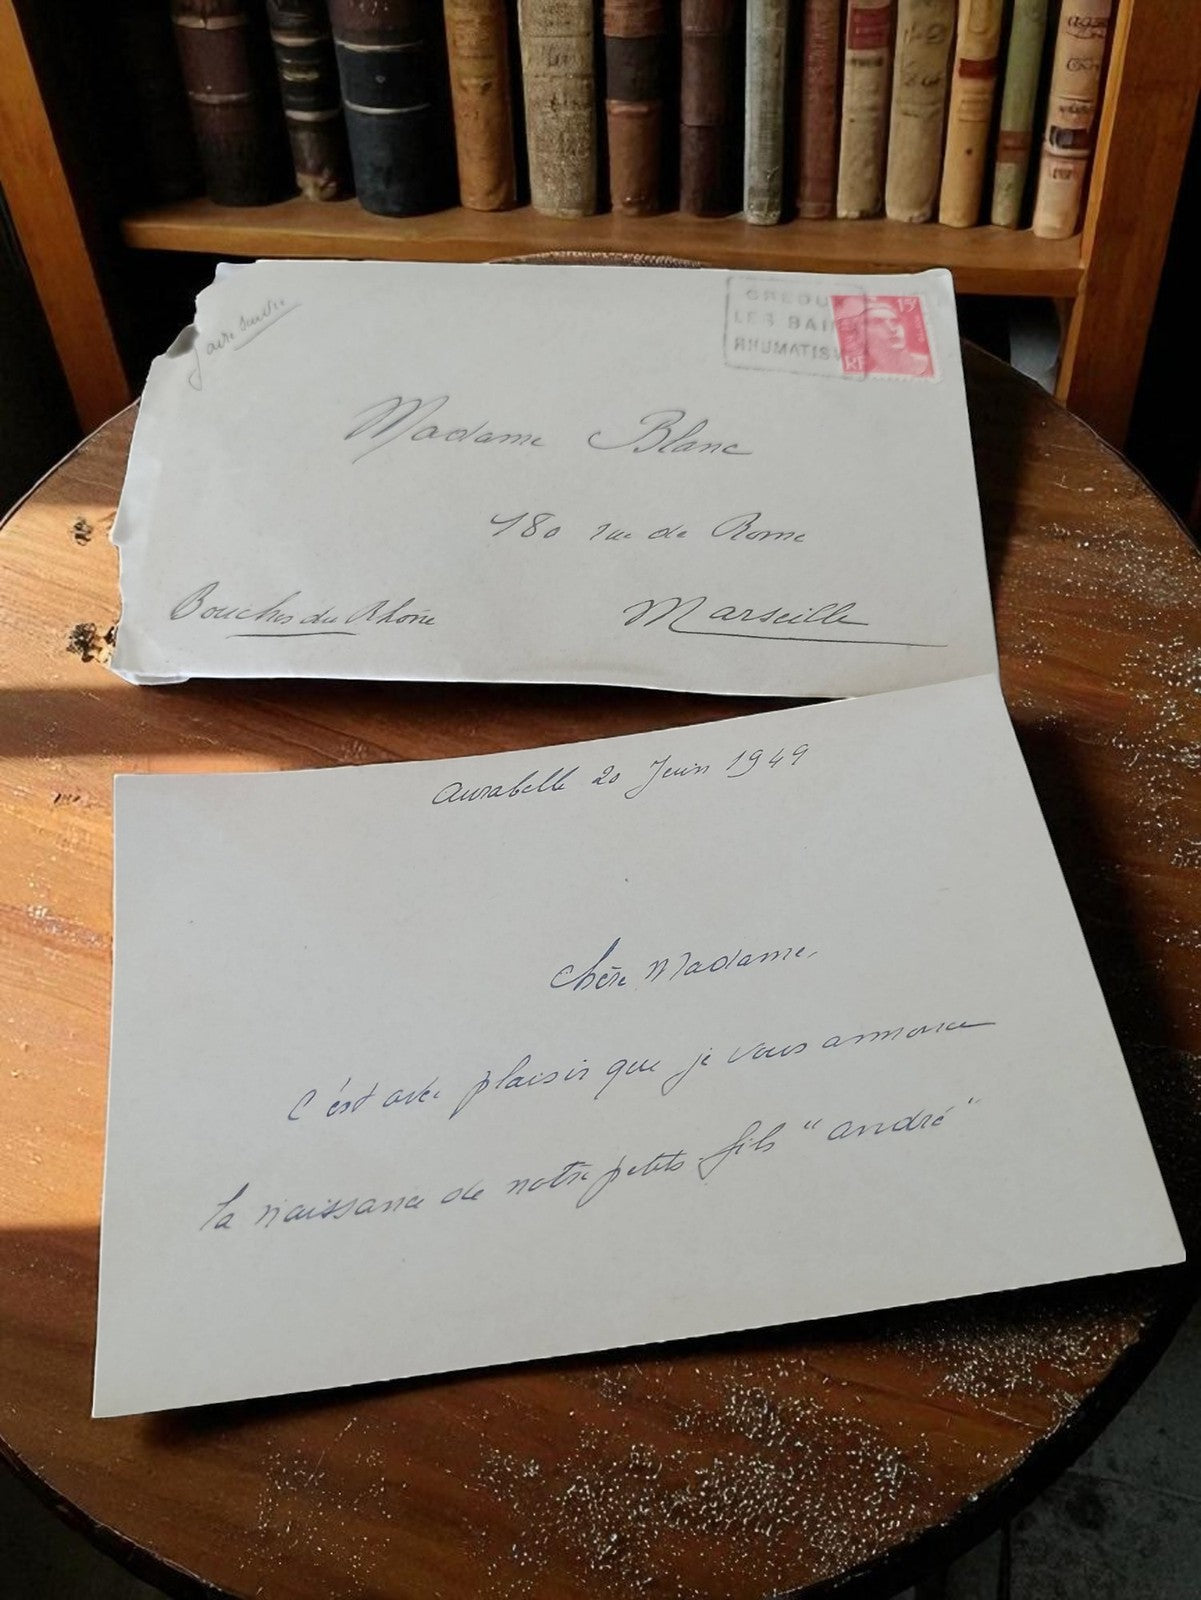 faire suivre
GREOUX
LES BAINS
RHUMATISM
15F
RF
Madame Blanc
180 rue de Rome
Bouches du Rhône
Marseille
Aurabelle 20 Juin 1949
Chère Madame,
C'est avec plaisir que je vous annonce
la naissance de notre petits fils "André"